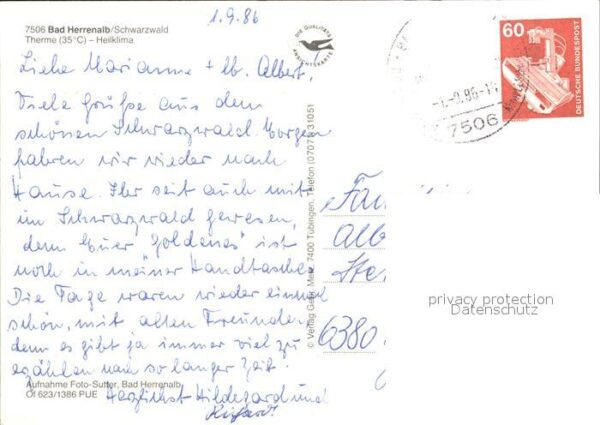 1.9.86
7506 Bad Herrenalb/Schwarzwald
Therme (35°C) – Heilklima
DIE QUALITÄTS
ANSICHTSKARTE
Liebe Marianne + lb. Albert,
Viele Grüße aus dem
schönen Schwarzwald. Morgen
fahren wir wieder nach
Hause. Ihr seit auch mit
im Schwarzwald gewesen,
denn Euer "Goldenes" ist
noch in meiner Handtasche.
Die Tage waren wieder einmal
schön, mit alten Freunden,
denn es gibt ja immer viel zu
erzählen nach so langer Zeit.
Herzlichst Hildegard und
Richard.
Aufnahme Foto-Sutter, Bad Herrenalb
Of 623/1386 PUE
© Verlag Gebr. Metz, 7400 Tübingen, Telefon (07071) 31051
60
DEUTSCHE BUNDESPOST
-1.-9.86-1
7506
Fa
Alb
Ste
6380
privacy protection
Datenschutz